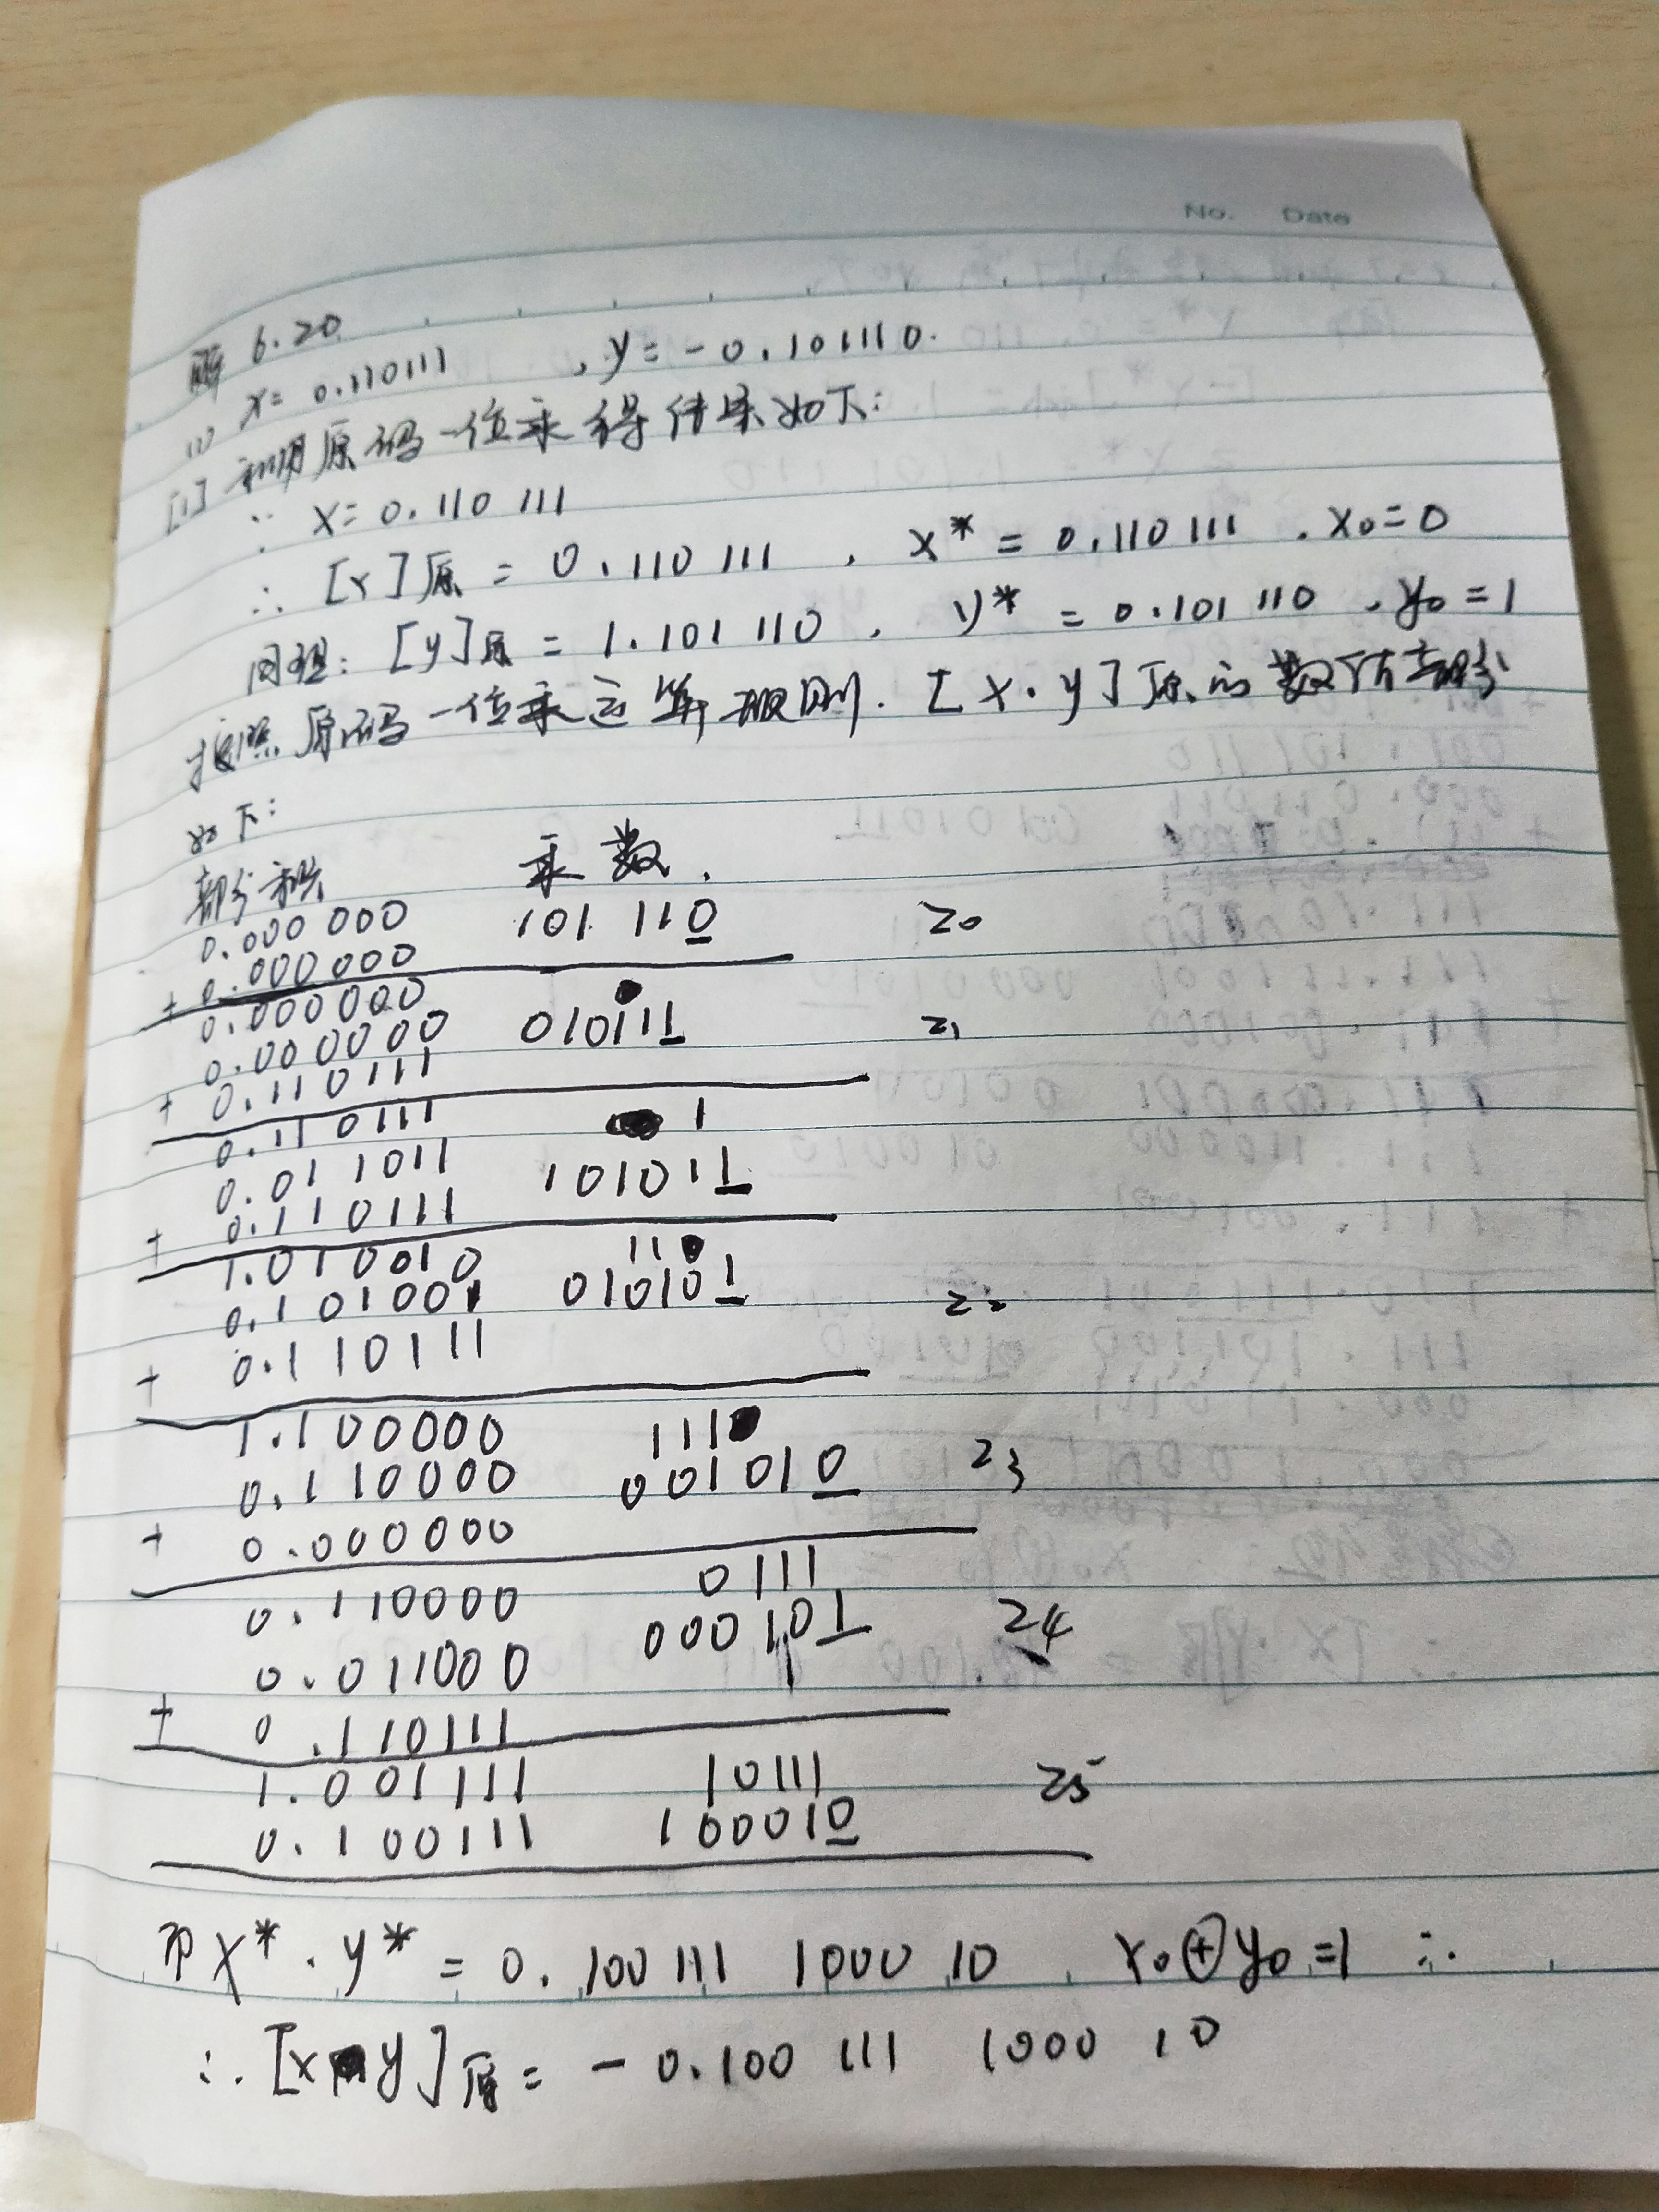 No. Date
解 6.20
(1) x= 0.110111 , y= -0.101110.
[1] 利用原码一位乘得结果如下:
∵ x= 0.110 111
∴ [x]原 = 0.110 111 , x* = 0.110 111 . x0=0
同理: [y]原 = 1.101 110 , y* = 0.101 110 . y0=1
按照原码一位乘运算规则. [x·y]原的数值部分
如下:
部分积 乘数.
0.000 000 101 110 20
+ 0.000 000
0.000000
0.000000 010111 21
+ 0.110111
0.110111 1
0.011011 101011
+ 0.110111
1.010010 11
0.101001 010101 22
+ 0.110111
1.100000 111
0.110000 001010 23
+ 0.000000
0.110000 0111
0.011000 000101 24
+ 0.110111
1.001111 10111
0.100111 100010 25
即 x*·y* = 0.100 111 1000 10 , x0⊕y0=1 ∴
∴ [x y]原= -0.100 111 1000 10